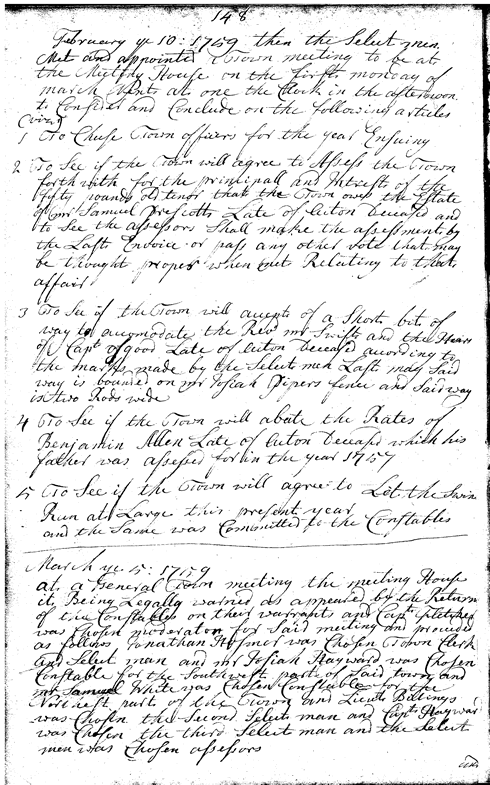 148
February ye 10: 1759 then the Select men
Met and appointed a Town meeting to be at
the Meeting House on the first monday of
march Next at one the Clock in the afternoon
to Consider and Conclude on the following articles
(vizt)
1 To Chuse Town officers for the year Ensuing
2 To See if the Town will agree to Assess the Town
forth with for the principall and Intrest of the
fifty pounds old tenor that the Town owes the Estate
of mr Samuel Prescott Late of Acton Deceased and
to See the assessors Shall make the assessment by
the Last Envoice or pass any other vote that may
be thought proper when met Relating to that
affair
3 To See if the Town will accept of a Short bit of
way to acomodate the Revd mr Swift and the Heirs
of Capt Osgood Late of Acton Deceased acording to
the marks made by the Select men Last may Said
way is bounded on mr Josiah Pipers fence and Said way
is two Rods wide
4 To See if the Town will abate the Rates of
Benjamin Allen Late of Acton Deceased which his
father was assessed for in the year 1757
5 To See if the Town will agree to Let the Swine
Run at Large this present year
and the Same was Committed to the Constables
March ye 5: 1759
at a General Town meeting the meeting House
it Being Legally warned as appeared by the Return
of the Constables on their warrants and Capt Fletcher
was Chosen moderator for Said meeting and proceded
as follows Jonathan Hosmer was Chosen Town Clerk
and Select man and mr Josiah Hayward was Chosen
Constable for the Southwest part of Said town and
mr Samuel White was Chosen Constable for the
Northeast part of the Town and Lieut Billings
was Chosen the Second Select man and Capt Hayward
was Chosen the third Select man and the Select
men was Chosen assessors